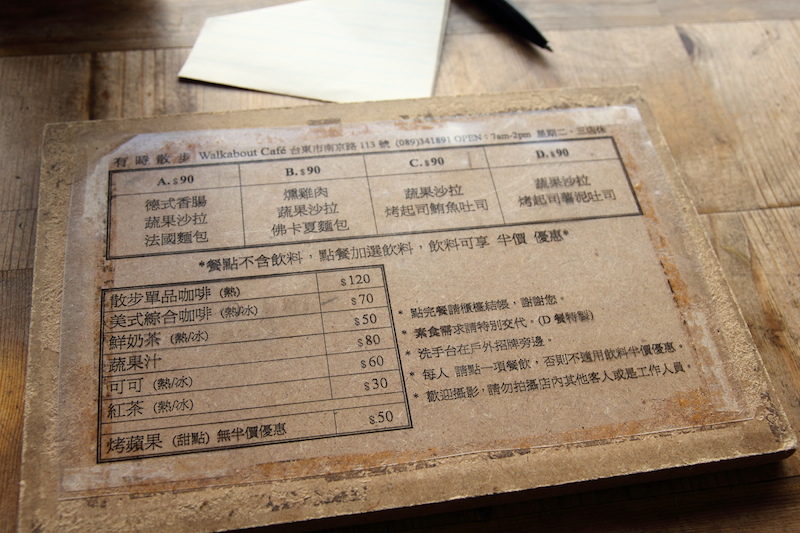 有時散步 Walkabout Café 台東市南京路 113 號 (089)341891 OPEN：7am-2pm 星期二、三店休
A. $90 B. $90 C. $90 D. $90
德式香腸 燻雞肉 蔬果沙拉 蔬果沙拉
蔬果沙拉 蔬果沙拉 烤起司鮪魚吐司 烤起司薯泥吐司
法國麵包 佛卡夏麵包
*餐點不含飲料，點餐加選飲料，飲料可享 半價 優惠*
散步單品咖啡 (熱) $120
美式綜合咖啡 (熱/冰) $70
鮮奶茶 (熱/冰) $50
蔬果汁 $80
可可 (熱/冰) $60
紅茶 (熱/冰) $30
烤蘋果 (甜點) 無半價優惠 $50
* 點完餐請櫃檯結帳，謝謝您。
* 素食需求請特別交代。(D 餐特製)
* 洗手台在戶外招牌旁邊。
* 每人 請點一項餐飲，否則不適用飲料半價優惠。
* 歡迎攝影，請勿拍攝店內其他客人或是工作人員。